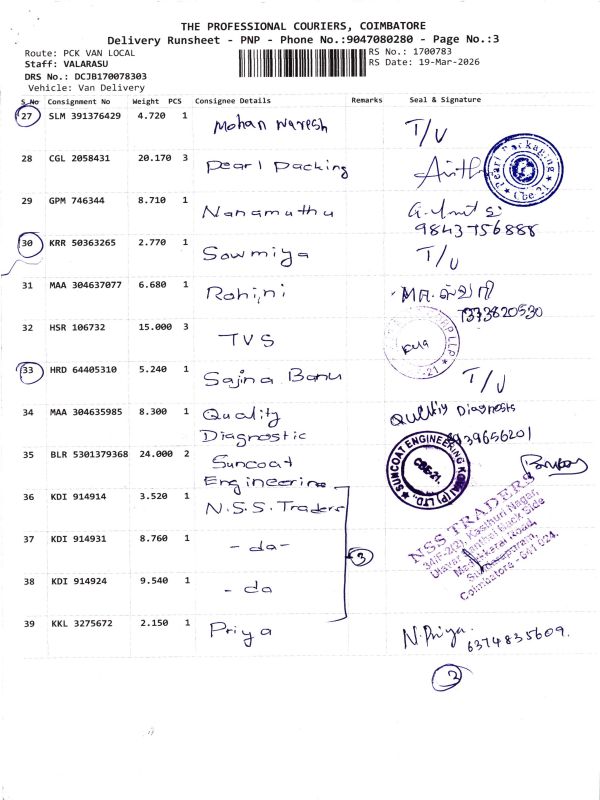 THE PROFESSIONAL COURIERS, COIMBATORE
Delivery Runsheet - PNP - Phone No.:9047080280 - Page No.:3
Route: PCK VAN LOCAL
RS No.: 1700783
Staff: VALARASU
RS Date: 19-Mar-2026
DRS No.: DCJB170078303
Vehicle: Van Delivery
S.No Consignment No Weight PCS Consignee Details Remarks Seal & Signature
27 SLM 391376429 4.720 1 Mohan Naresh T/U
28 CGL 2058431 20.170 3 Pearl Packing
Pearl Packaging
29 GPM 746344 8.710 1 Nanamuthu
9843756888
30 KRR 50363265 2.770 1 Sowmiya T/U
31 MAA 304637077 6.680 1 Rohini
7373820530
32 HSR 106732 15.000 3 TVS
33 HRD 64405310 5.240 1 Sajna Banu T/U
34 MAA 304635985 8.300 1 Quality
Diagnostic
9939656201
35 BLR 5301379368 24.000 2 Suncoat
Engineering
SUNCOAT ENGINEERING KOVAI (P) LTD.,
CBE-21.
36 KDI 914914 3.520 1 N.S.S. Traders
37 KDI 914931 8.760 1 - da -
38 KDI 914924 9.540 1 - da
3
NSS TRADERS
34/F-2(2), Kasthuri Nagar,
Back Side
Road,
Coimbatore - 641 024.
39 KKL 3275672 2.150 1 Priya N. Priya.
6374835609.
2